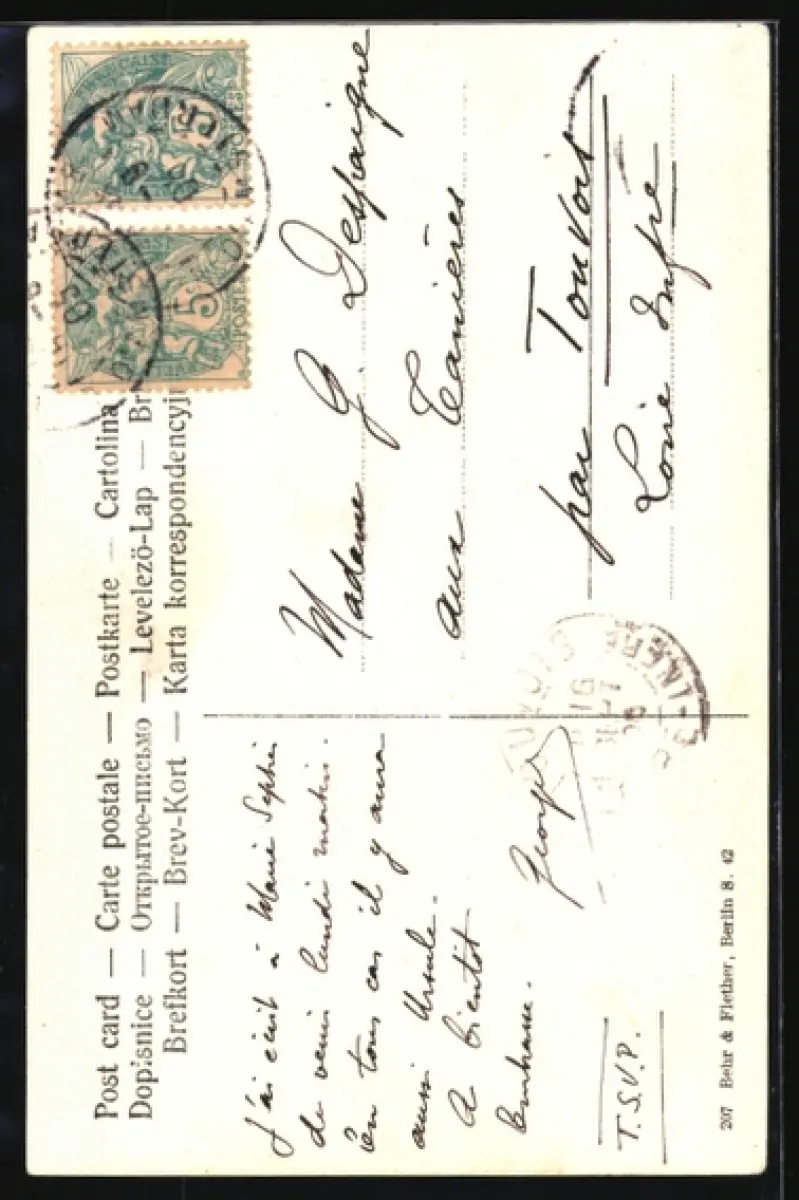 Post card — Carte postale — Postkarte — Cartolina
Dopisnice — Открытое-письмо — Levelező-Lap — Br
Brefkort — Brev-Kort — Karta korrespondencyj
POSTES
5
J'ai écrit à Marie
de venir lundi matin.
En tous cas il y aura
aussi Ursule.
A bientôt
Georges
T.S.V.P.
Madame G. Despaigne
aux Tanières
par Touvois
Loire Infre
207 Behr & Flether, Berlin S. 42